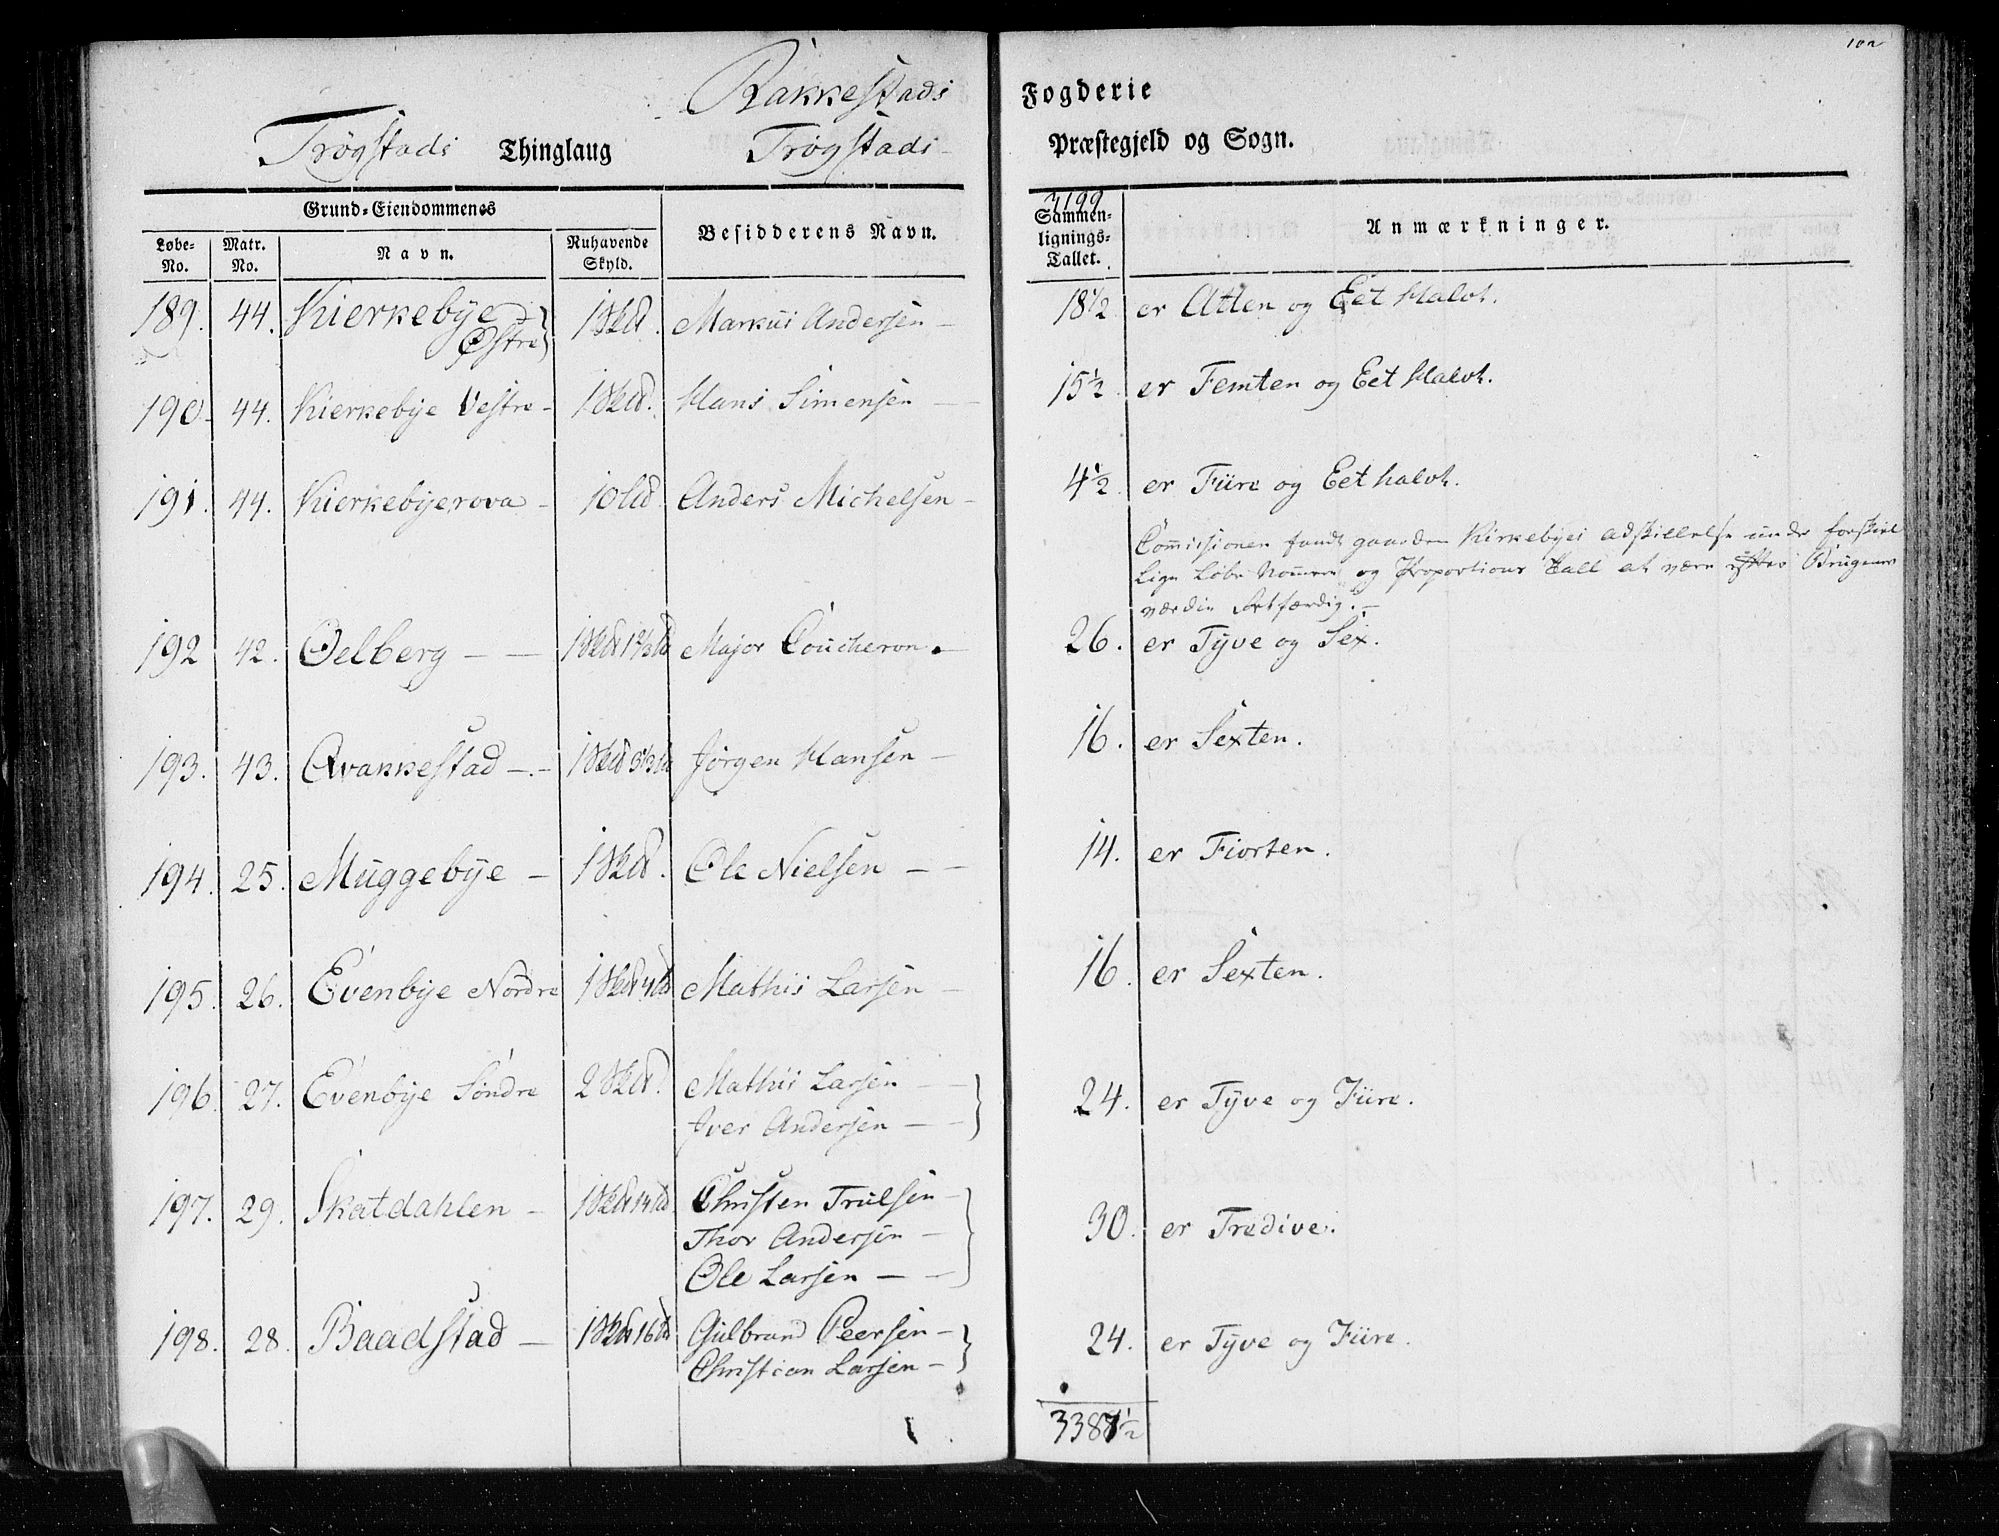 102
Rakkestads Fogderie
Trøgstads Thinglaug Trøgstads Præstegjeld og Sogn.
Grund-Eiendommenes
Løbe-No. Matr. No. Navn. Nuhavende Skyld. Besidderens Navn. Sammen-lignings-Tallet. Anmærkninger.
3199
189. 44. Kierkebÿe Østre } 1 Skd. Markus Andersen — 18½ er Atten og Eet Halvt.
190. 44. Kierkebÿe Vestre - 1 Skd. Hans Simensen — 15½ er Femten og Eet Halvt.
191. 44. Kierkebÿerova - 10 Ld. Anders Michelsen - 4½ er Fiire og Eet halvt.
Commissionen fandt gaarden Kirkebÿes adskillelse under forskiel
lige Løbe Nommere og Proportions Tall at være efter Brugenes
værdie Retfærdig. —
192 42. Oelberg — — 1 Skd 12⅔ Ld Major Coucheron. — 26. er Tÿve og Sex.
193. 43. Qvakkestad — . — 1 Skd 3⅓ Ld Jørgen Hansen — 16. er Sexten.
194. 25. Muggebÿe — 1 Skd. Ole Nielsen — — 14. er Fiorten.
195. 26. Evenbÿe Nordre 1 Skd 4 Ld Mathis Larsen — 16. er Sexten.
196. 27. Evenbÿe Søndre 2 Skd. Mathis Larsen — —
Iver Andersen — — } 24. er Tÿve og Fiire.
197. 29. Skatdahlen — 1 Skd 14 Ld Christen Trulsen —
Thor Andersen —
Ole Larsen — — } 30. er Tredive.
198. 28. Baadstad — 1 Skd 16 Ld Gulbrand Peersen —
Christian Larsen — } 24. er Tÿve og Fiire.
3387½